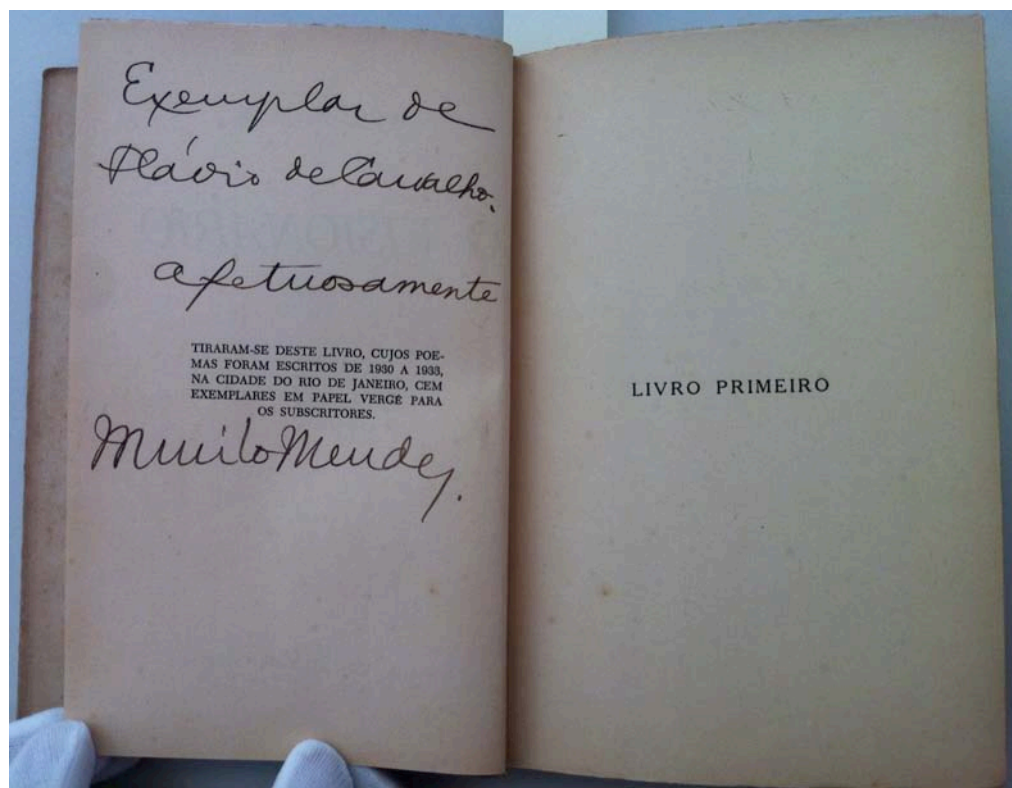 Exemplar de
Flávio de Carvalho.
afetuosamente
TIRARAM-SE DESTE LIVRO, CUJOS POE-
MAS FORAM ESCRITOS DE 1930 A 1933,
NA CIDADE DO RIO DE JANEIRO, CEM
EXEMPLARES EM PAPEL VERGÉ PARA
OS SUBSCRITORES.
Murilo Mendes.
LIVRO PRIMEIRO